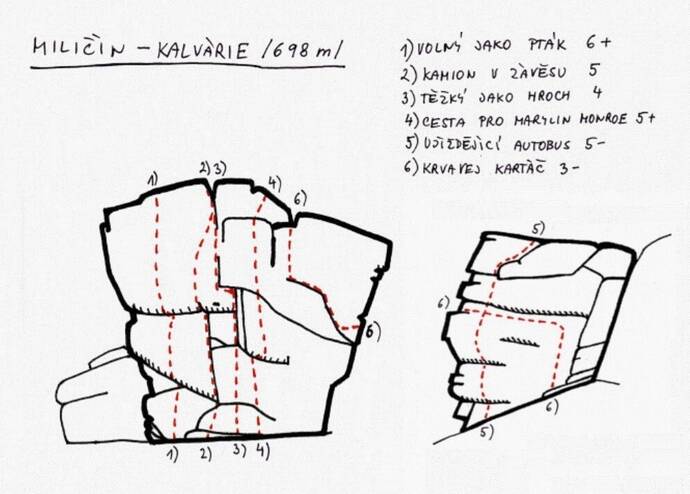 MILIČÍN – KALVÁRIE /698 m/
1) VOLNÝ JAKO PTÁK 6+
2) KAMION V ZÁVĚSU 5
3) TĚŽKÝ JAKO HROCH 4
4) CESTA PRO MARYLIN MONROE 5+
5) UJÍŽDĚJÍCÍ AUTOBUS 5-
6) KRVAVEJ KARTÁČ 3-
1)
2) 3)
4)
6)
6)
1)
2)
3)
4)
5)
6)
6)
5)